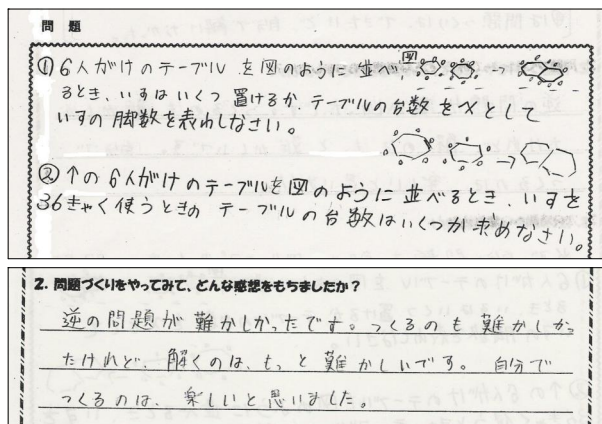 問 題
① 6人がけのテーブルを図のように並べ
図
るとき、いすはいくつ置けるか、テーブルの台数をxとして
いすの脚数を表わしなさい。
② ↑の6人がけのテーブルを図のように並べるとき、いすを
36きゃく使うときの テーブルの台数はいくつか求めなさい。
2. 問題づくりをやってみて、どんな感想をもちましたか?
逆の問題が難かしかったです。つくるのも難かしかっ
たけれど、解くのは、もっと難かしいです。自分で
つくるのは、楽しいと思いました。